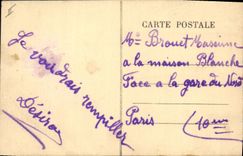 CARTE POSTALE
Je voudrais rempiller
Désiron
Mr Brouet Maxime
a la maison Blanche
Face a la gare du Nord
Paris (10eme)